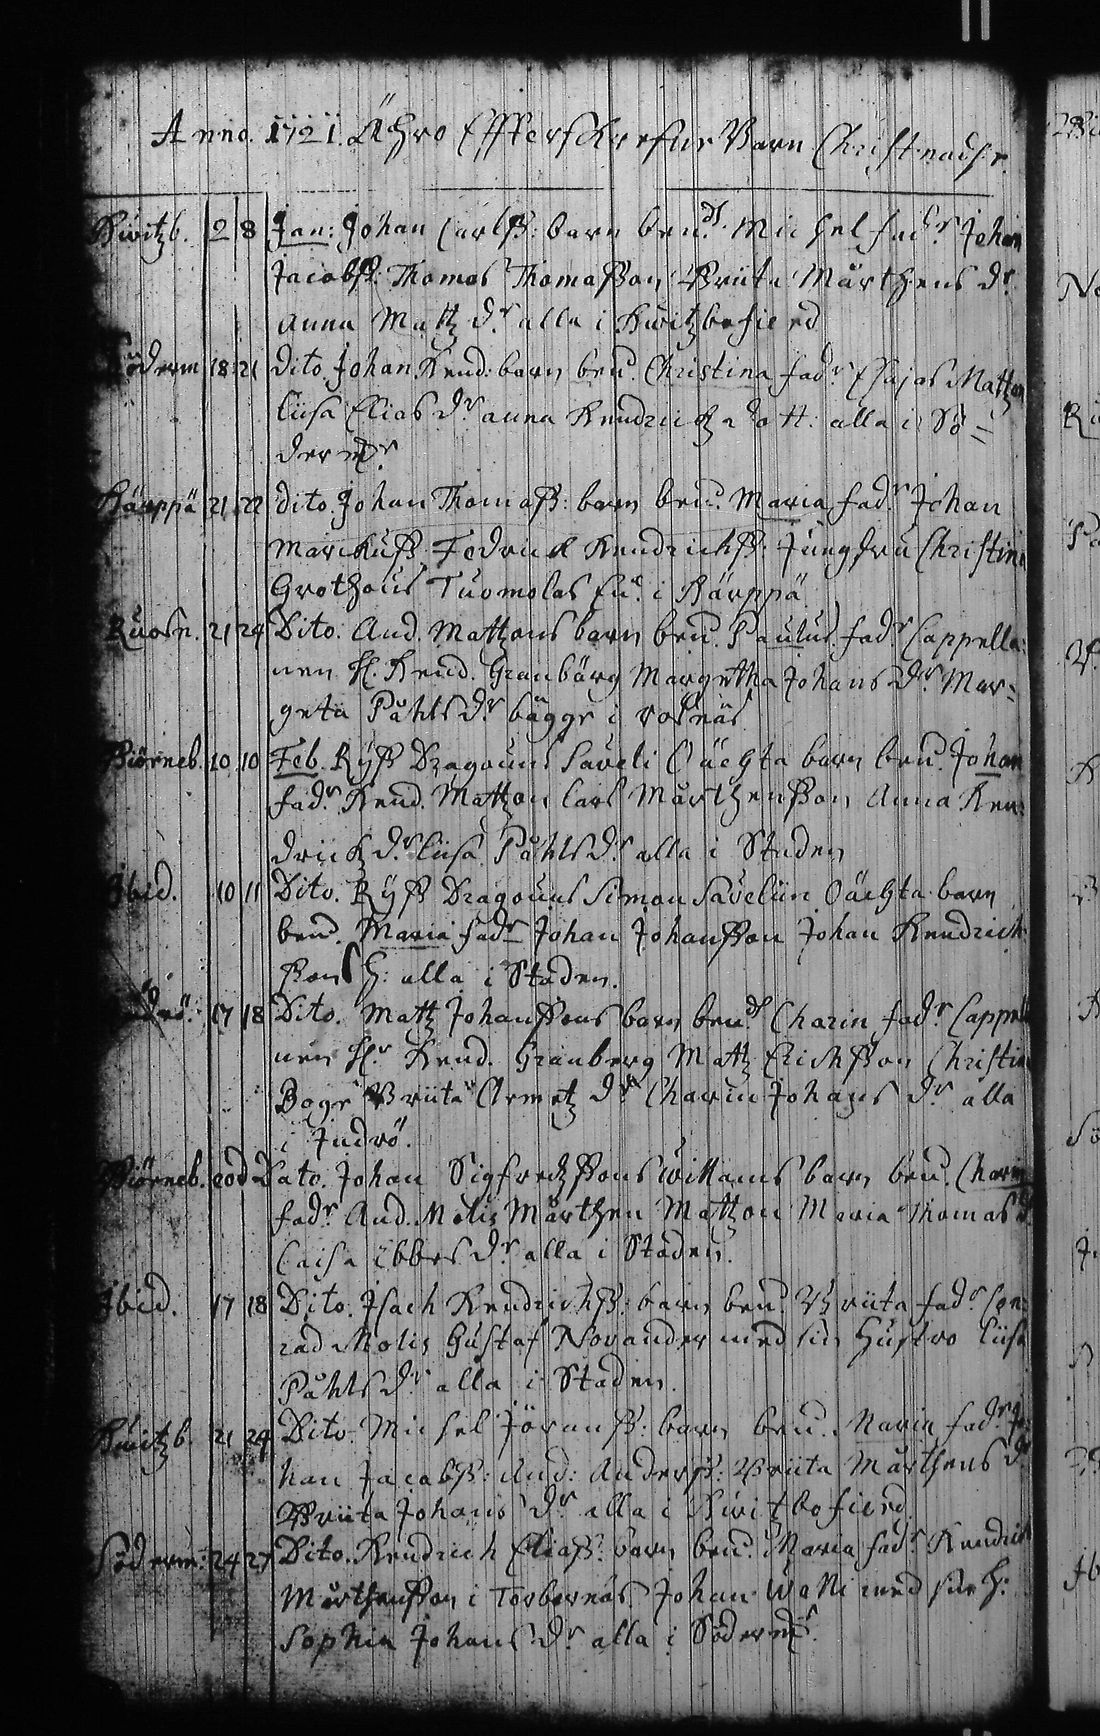 Anno. 1721. Ähro Effterskrefne Barn Christnade.
Kwitzb. 2 8 Jan: Johan Carlß: barn bend. Michel fadr Johan
Jacobß: Thomas Thomaßon Brita Mårthens dr
Anna Matz dr alla i Kwitzbofierd
Söderm 18 21 Dito Johan Hend: barn ben. Christina fadr Esajas Matzon
Liisa Elias dr Anna Hendrichz dott. alla i Sö=
dermr
Härppä 21 22 Dito. Johan Thomaß: barn ben. Maria fadr Johan
Marckuß Fedrick Hendrichß: Jungfru Christina
Grothaus Tuomolas i Härppä
Ruosn. 21 24 Dito. And. Matzons barn ben. Paulus fadr Cappella=
nen H. Hend. Granbärg Margetha Johans dr Mar=
geta Påhls dr bägge i rosnäs
Biörneb. 10 10 Feb. Ryß Dragouns Saveli barn ben. Johan
fadr Hend. Matzon Lars Mårthenßon Anna Hen=
drickz dr Liisa Påhls dr alla i Staden
Ibid. 10 11 Dito. Ryß Dragouns Simon Saveliin barn
bend. Maria fadr Johan Johanßon Johan Hendrich
ßons H: alla i Staden.
17 18 Dito. Matz Johanßons barn bend Charin fadr Cappella
nen Hr Hend. Granberg Matz Erichßon Christin
Boge Briita Clemetz dr Charin Johans dr alla
i Indrö.
Biörneb. eod Dato. Johan Sigfredzßons barn ben. Charin
fadr And. Molis Mårthen Matzon Maria Thomas d.
Caisa Ebbes dr alla i Staden.
Ibid. 17 18 Dito. Isach Hendrichß: barn ben. Briita fadr Con=
rad Molis Gustaf Norander med sin Hustro Liisa
Påhls dr alla i Staden.
Kwitzb. 21 24 Dito Michel Jöranß: barn ben. Maria fadr Jo
han Jacobß: And: Anderß: Briita Mårthens dr
Briita Johans dr alla i Kwitzbofierd
Söderm: 24 27 Dito. Hendrich Eliaß: barn ben. Maria fadr Hendrich
Mårthenßon i Torbernäs Johan Walli med sin H:
Sophia Johans dr alla i Södermr.